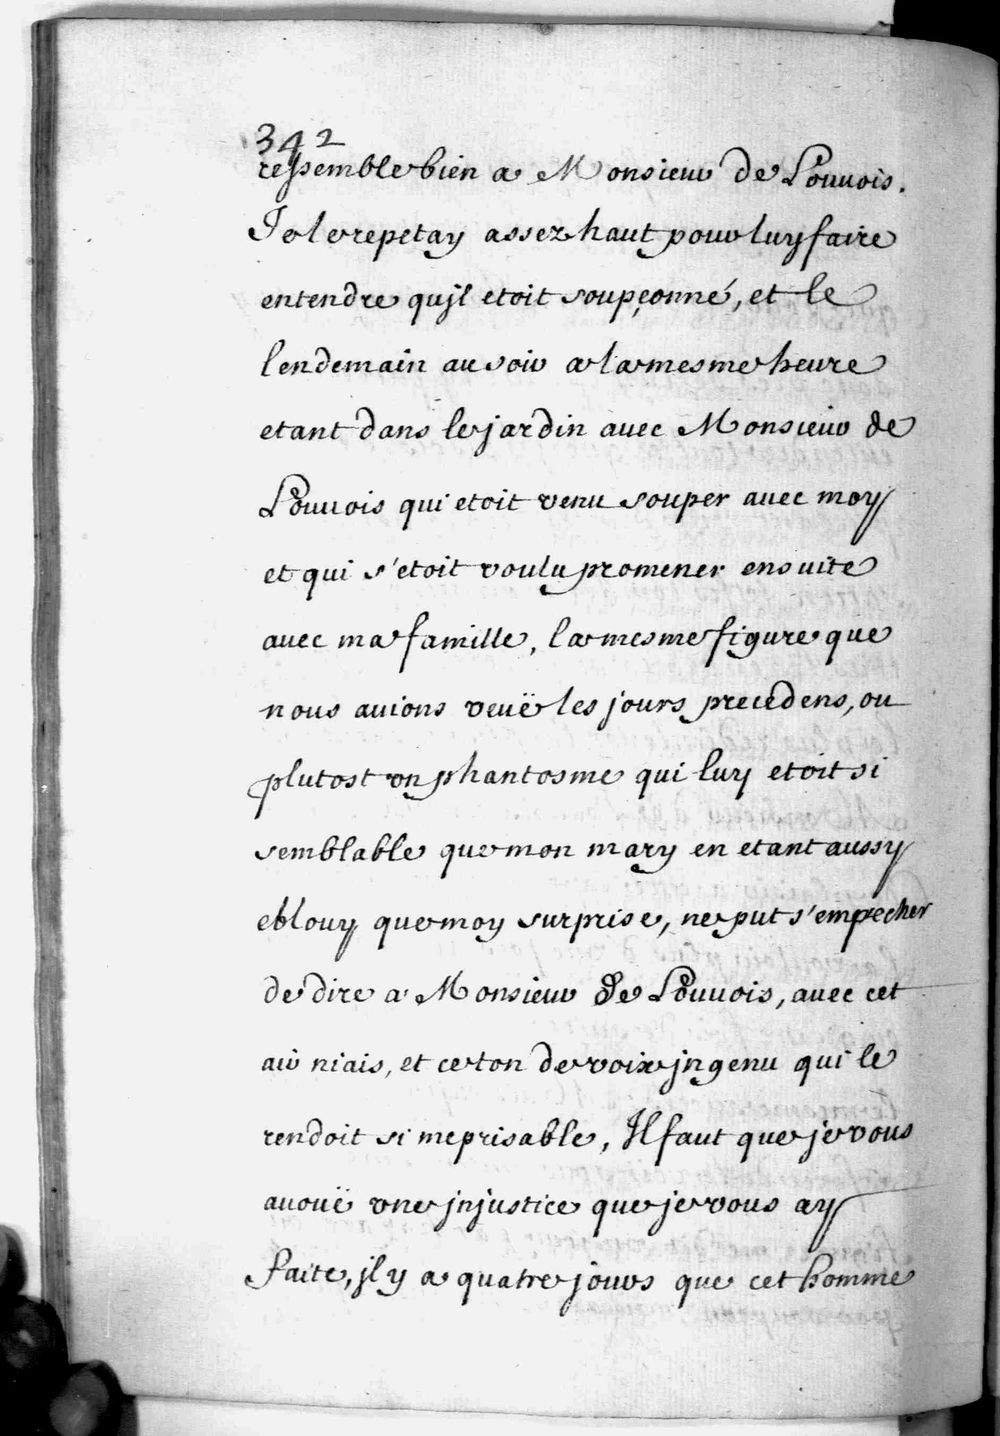 342
ressemble bien a Monsieur de Louvois.
Je le repetay assez haut pour luy faire
entendre qu'jl etoit soupçonné, et le
lendemain au soir a la mesme heure
etant dans le jardin avec Monsieur de
Louvois qui etoit venu souper avec moy
et qui s'etoit voulu promener ensuite
avec ma famille, la mesme figure que
nous avions veuë les jours precedens, ou
plutost vn phantosme qui luy etoit si
semblable que mon mary en etant aussy
eblouy que moy surprise, ne put s'empecher
de dire a Monsieur de Louvois, avec cet
air niais, et ce ton de voix jngenu qui le
rendoit si meprisable, Il faut que je vous
avouë vne jnjustice que je vous ay
faite, jl y a quatre jours que cet homme